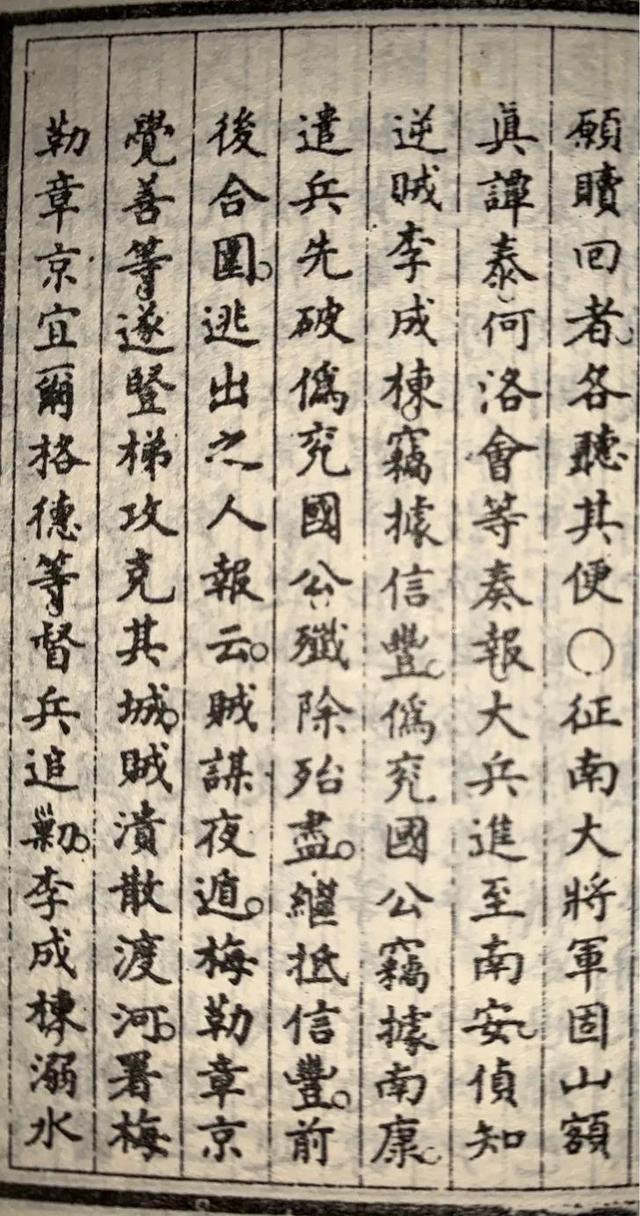 願贖回者。各聽其便○征南大將軍固山額
眞譚泰何洛會等奏報大兵進至南安。偵知
逆賊李成棟竊據信豐。僞兗國公竊據南康。
遣兵先破僞兗國公殲除殆盡。繼抵信豐。前
後合圍。逃出之人報云。賊謀夜遁。梅勒章京
覺善等遂豎梯攻克其城。賊潰散渡河。署梅
勒章京宜爾格德等督兵追勦。李成棟溺水